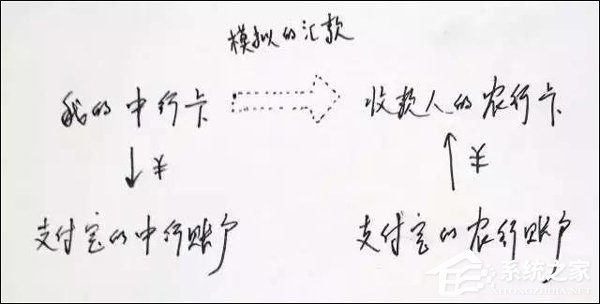 模拟的汇款
我的中行卡 收款人的农行卡
¥ ¥
支付宝的中行账户 支付宝的农行账户
系统之家
XITONGZHIJIA.NET